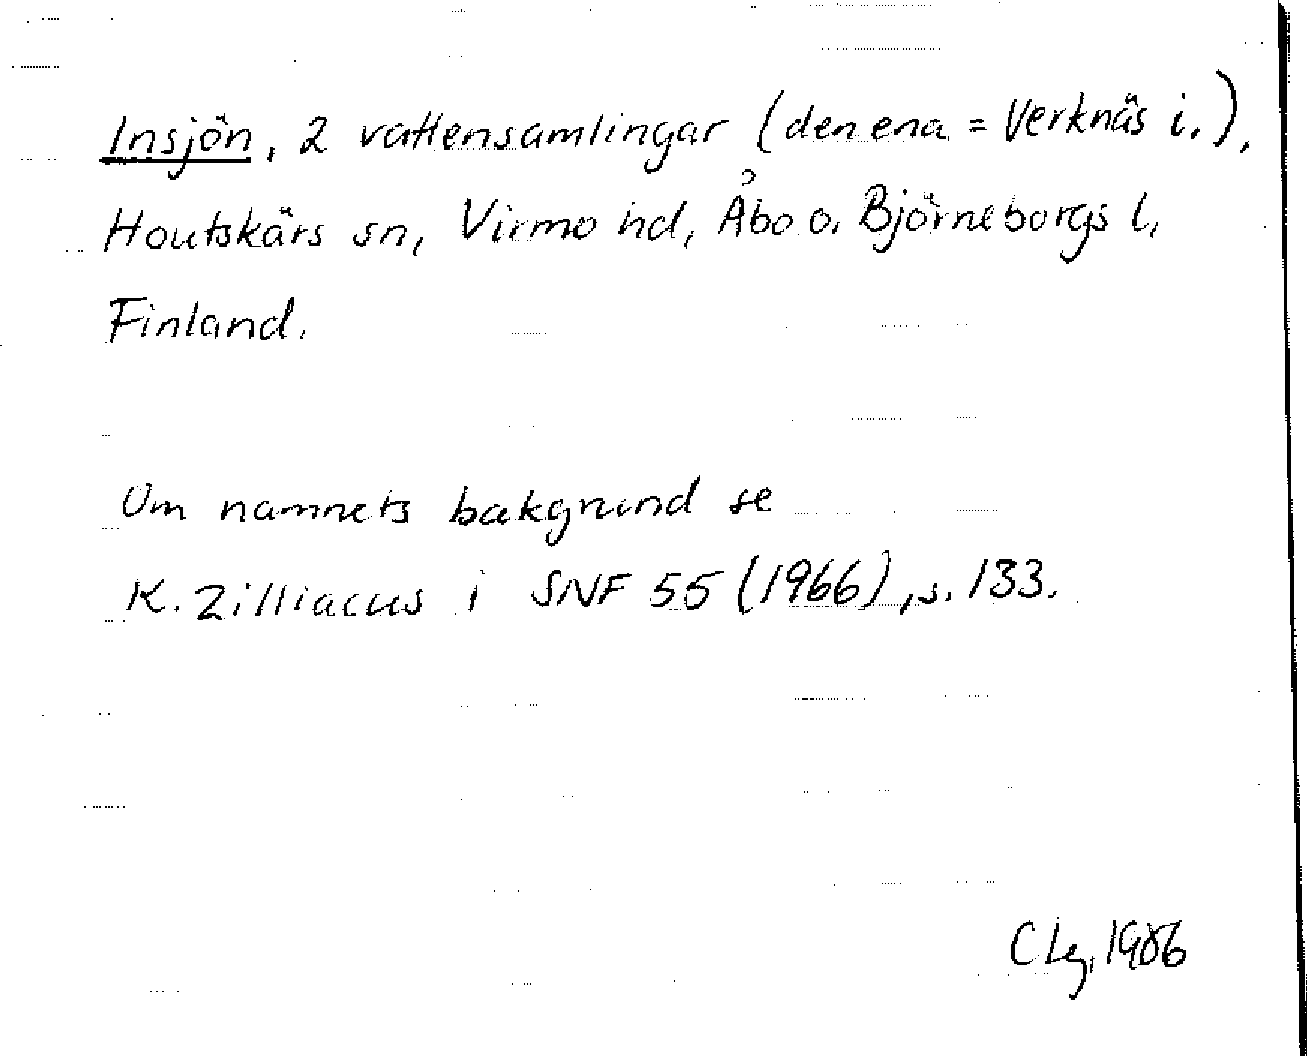 Insjön, 2 vattensamlingar (den ena = Verknäs i.),
Houtskärs sn, Virmo hd, Åbo o. Björneborgs l,
Finland.
Om namnets bakgrund se
K. Zilliacus i SNF 55 (1966), s. 133.
CLg, 1986